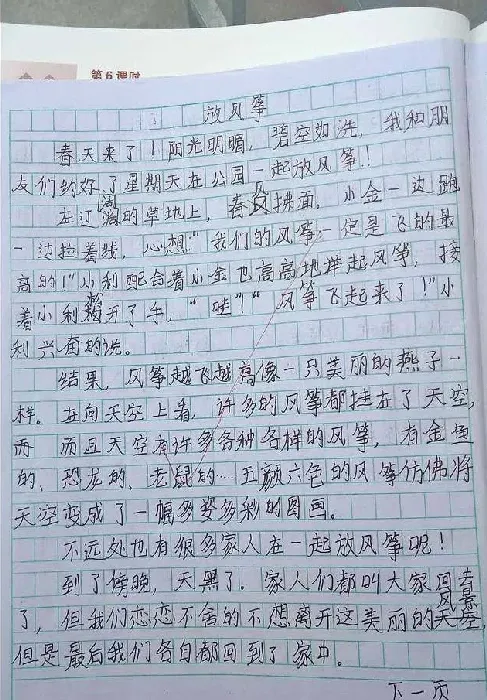 第6课时
放风筝
春天来了！阳光明媚，碧空如洗，我和朋
友们约好了星期天在公园一起放风筝！
在辽阔的草地上，春风拂面，小金一边跑
一边拉着线，心想："我们的风筝一定是飞的最
高的！"小利配合着小金也高高地举起风筝，接
着小利松开了手，"哇！""风筝飞起来了！"小
利兴奋的说。
结果，风筝越飞越高像一只美丽的燕子一
样。在向天空上看，许多的风筝都挂在了天空，
而且天空有许多各种各样的风筝，有金鱼
的，恐龙的，老鼠的…五颜六色的风筝仿佛将
天空变成了一幅多姿多彩的图画。
不远处也有很多家人在一起放风筝呢！
到了傍晚，天黑了，家人们都叫大家回去
了，但我们恋恋不舍的不想离开这美丽的风景
但是最后我们各自都回到了家中。
下一页